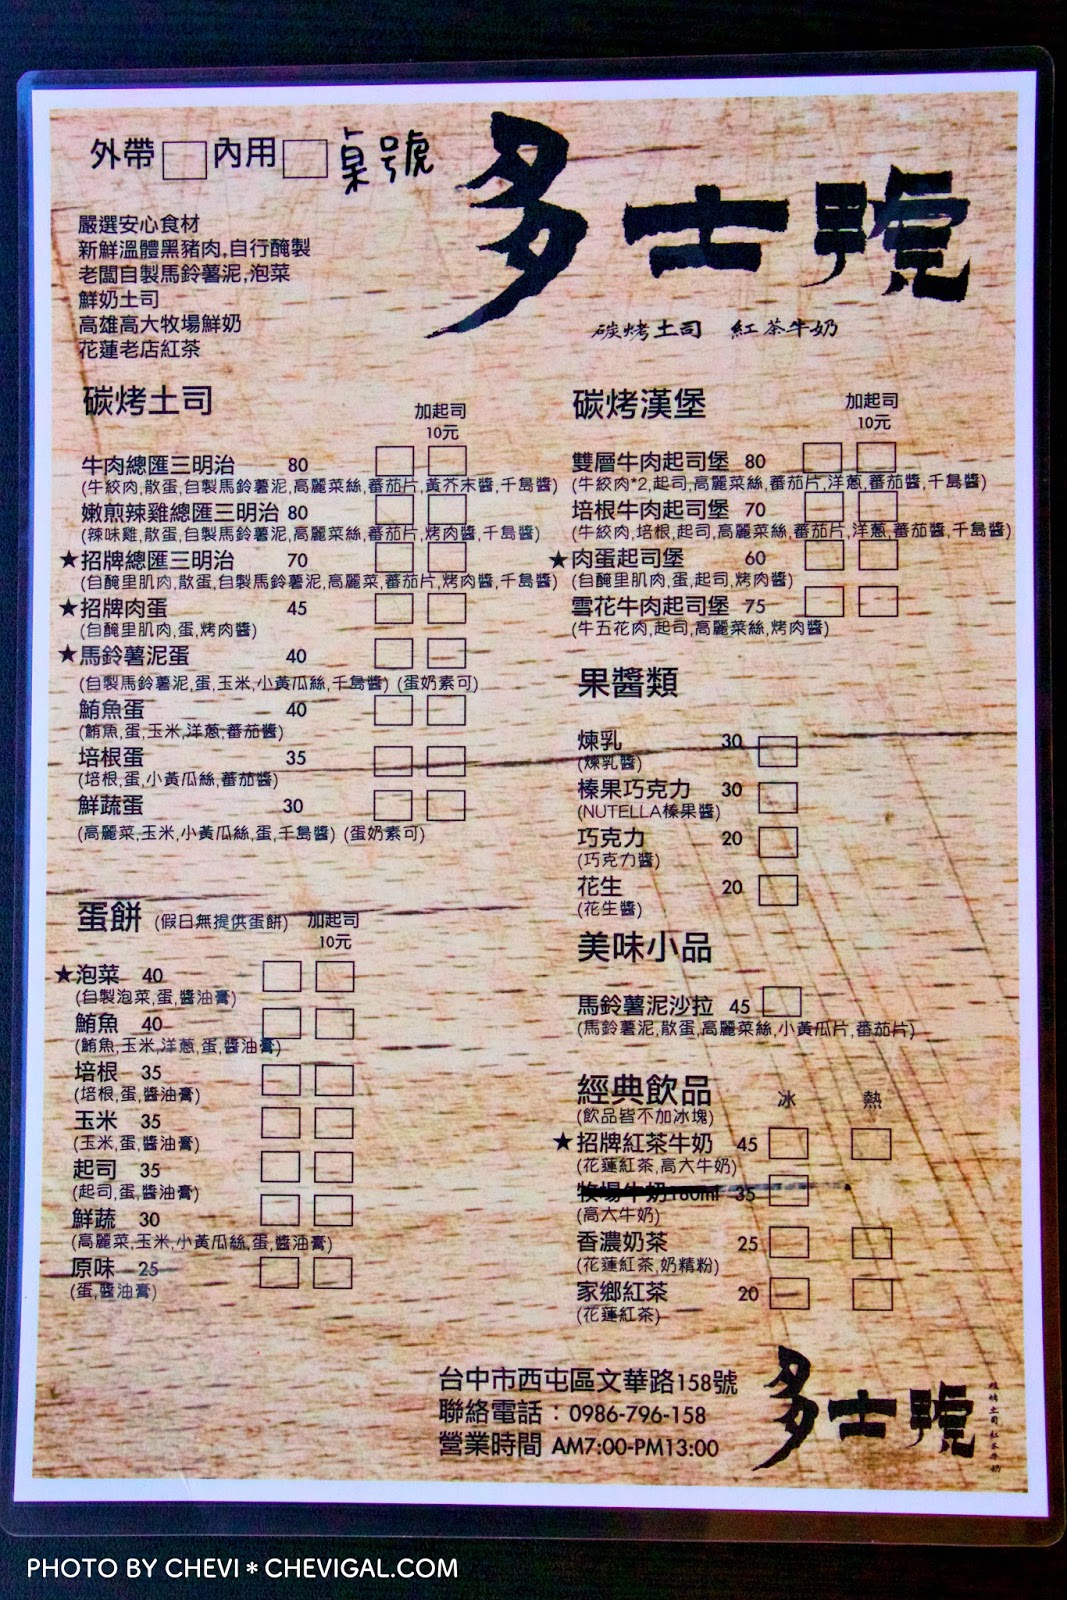 外帶 內用 桌號
多士號
碳烤土司 紅茶牛奶
嚴選安心食材
新鮮溫體黑豬肉,自行醃製
老闆自製馬鈴薯泥,泡菜
鮮奶土司
高雄高大牧場鮮奶
花蓮老店紅茶
碳烤土司
加起司
10元
牛肉總匯三明治 80
(牛絞肉,散蛋,自製馬鈴薯泥,高麗菜絲,蕃茄片,黃芥末醬,千島醬)
嫩煎辣雞總匯三明治 80
(辣味雞,散蛋,自製馬鈴薯泥,高麗菜絲,蕃茄片,烤肉醬,千島醬)
★招牌總匯三明治 70
(自醃里肌肉,散蛋,自製馬鈴薯泥,高麗菜,蕃茄片,烤肉醬,千島醬)
★招牌肉蛋 45
(自醃里肌肉,蛋,烤肉醬)
★馬鈴薯泥蛋 40
(自製馬鈴薯泥,蛋,玉米,小黃瓜絲,千島醬) (蛋奶素可)
鮪魚蛋 40
(鮪魚,蛋,玉米,洋蔥,蕃茄醬)
培根蛋 35
(培根,蛋,小黃瓜絲,蕃茄醬)
鮮蔬蛋 30
(高麗菜,玉米,小黃瓜絲,蛋,千島醬) (蛋奶素可)
蛋餅 (假日無提供蛋餅) 加起司
10元
★泡菜 40
(自製泡菜,蛋,醬油膏)
鮪魚 40
(鮪魚,玉米,洋蔥,蛋,醬油膏)
培根 35
(培根,蛋,醬油膏)
玉米 35
(玉米,蛋,醬油膏)
起司 35
(起司,蛋,醬油膏)
鮮蔬 30
(高麗菜,玉米,小黃瓜絲,蛋,醬油膏)
原味 25
(蛋,醬油膏)
碳烤漢堡
加起司
10元
雙層牛肉起司堡 80
(牛絞肉*2,起司,高麗菜絲,蕃茄片,洋蔥,蕃茄醬,千島醬)
培根牛肉起司堡 70
(牛絞肉,培根,起司,高麗菜絲,蕃茄片,洋蔥,蕃茄醬,千島醬)
★肉蛋起司堡 60
(自醃里肌肉,蛋,起司,烤肉醬)
雪花牛肉起司堡 75
(牛五花肉,起司,高麗菜絲,烤肉醬)
果醬類
煉乳 30
(煉乳醬)
榛果巧克力 30
(NUTELLA榛果醬)
巧克力 20
(巧克力醬)
花生 20
(花生醬)
美味小品
馬鈴薯泥沙拉 45
(馬鈴薯泥,散蛋,高麗菜絲,小黃瓜片,蕃茄片)
經典飲品 冰 熱
(飲品皆不加冰塊)
★招牌紅茶牛奶 45
(花蓮紅茶,高大牛奶)
牧場牛奶180ml 35
(高大牛奶)
香濃奶茶 25
(花蓮紅茶,奶精粉)
家鄉紅茶 20
(花蓮紅茶)
台中市西屯區文華路158號
聯絡電話：0986-796-158
營業時間 AM7:00-PM13:00
多士號
碳烤土司 紅茶牛奶
PHOTO BY CHEVI＊CHEVIGAL.COM